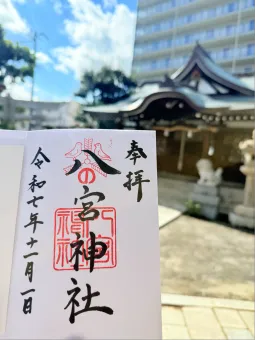 奉拝
八の宮神社
令和七年十一月一日